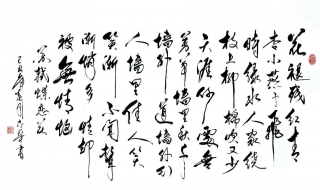 花褪残红青
杏小燕子飞
時绿水人家绕
枝上柳棉吹又少
天涯何處無
芳草墙里秋千
墙外道墙外行
人墙里佳人笑
笑渐不闻聲
渐悄多情却
被無情恼
苏軾蝶恋花